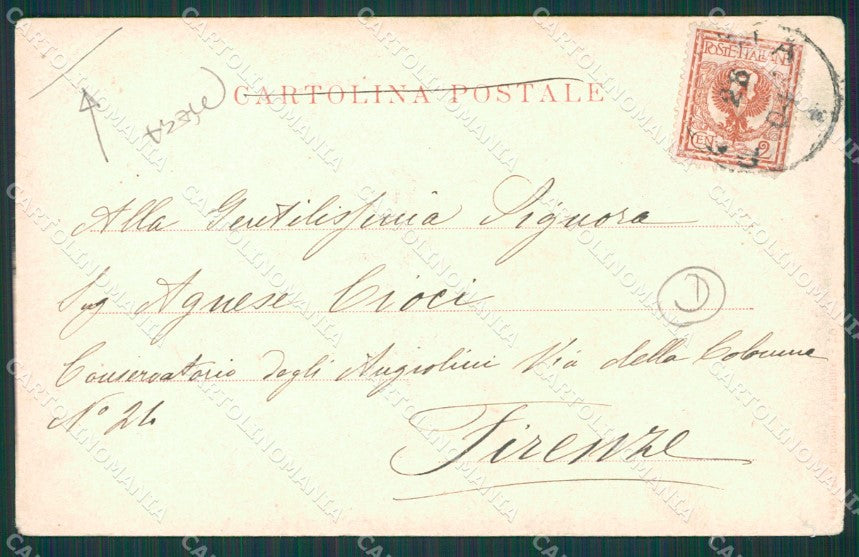 CARTOLINA POSTALE
POSTE ITALIANE
CEN. 2
28
Alla Gentilissima Signora
Sig Agnese Cioci
Conservatorio degli Angiolini Via della Colonna
N° 24
Firenze
D
CARTOLINOMANIA